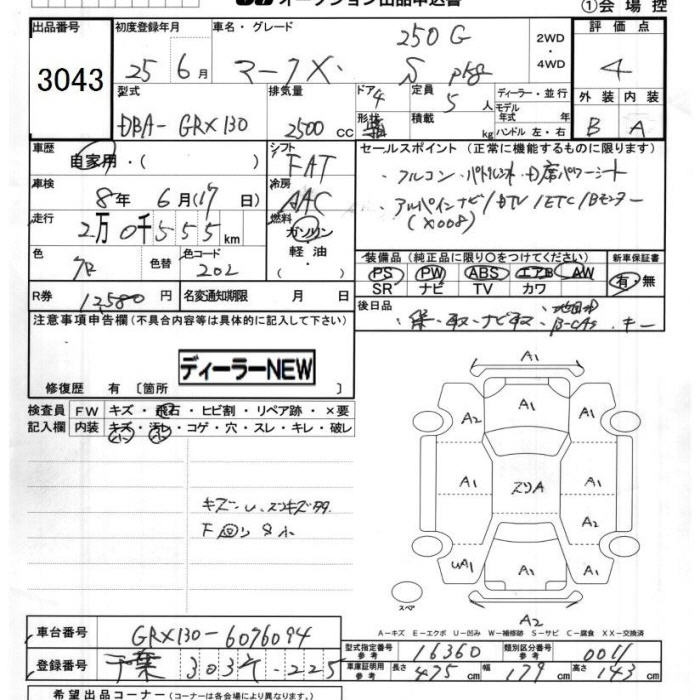 オークション出品申込書
①会場控
出品番号
初度登録年月
車名・グレード
250G
2WD
・
4WD
評価点
3043
25 6月
マークX
S pkg
4
型式
排気量
ドア 4
形状
定員 5人
積載 kg
ディーラー・並行
モデル
年式 年
ハンドル 左・右
外装
内装
DBA-GRX130
2500cc
B
A
車歴
自家用・( )
シフト
FAT
セールスポイント (正常に機能するものに限ります)
車検
8年 6月(17日)
冷房
AAC
・フルコン・パドルシフト・D席パワーシート
走行
2万0千555km
燃料
ガソリン
軽・油
・アルパインナビ/DTV/ETC/Bモニター
(X008)
色
色替
色コード
202
装備品 (純正品に限り〇をつけてください)
新車保証書
PS PW ABS エアB AW
有・無
SR ナビ TV カワ
R券
12580円
名変通知期限 月 日
後日品
注意事項申告欄(不具合内容等は具体的に記入して下さい)
ディーラーNEW
修復歴 有 〔箇所 〕
検査員
記入欄
FW キズ・飛石・ヒビ割・リペア跡・×要
内装 キズ・汚レ・コゲ・穴・スレ・キレ・破レ
A1
A1
A2
A1
A1
A1
A2
UA1
A1
A1
A2
スペア
A-キズ E-エクボ U-凹み W-補修跡 S-サビ C-腐食 XX-交換済
車台番号
GRX130-6076094
型式指定番号
参考
16360
類別区分番号
参考
0011
登録番号
千葉 303 225
車庫証明用
参考
長さ 475cm 幅 179cm 高さ 143cm
希望出品コーナー (コーナーは各会場により異なります。)